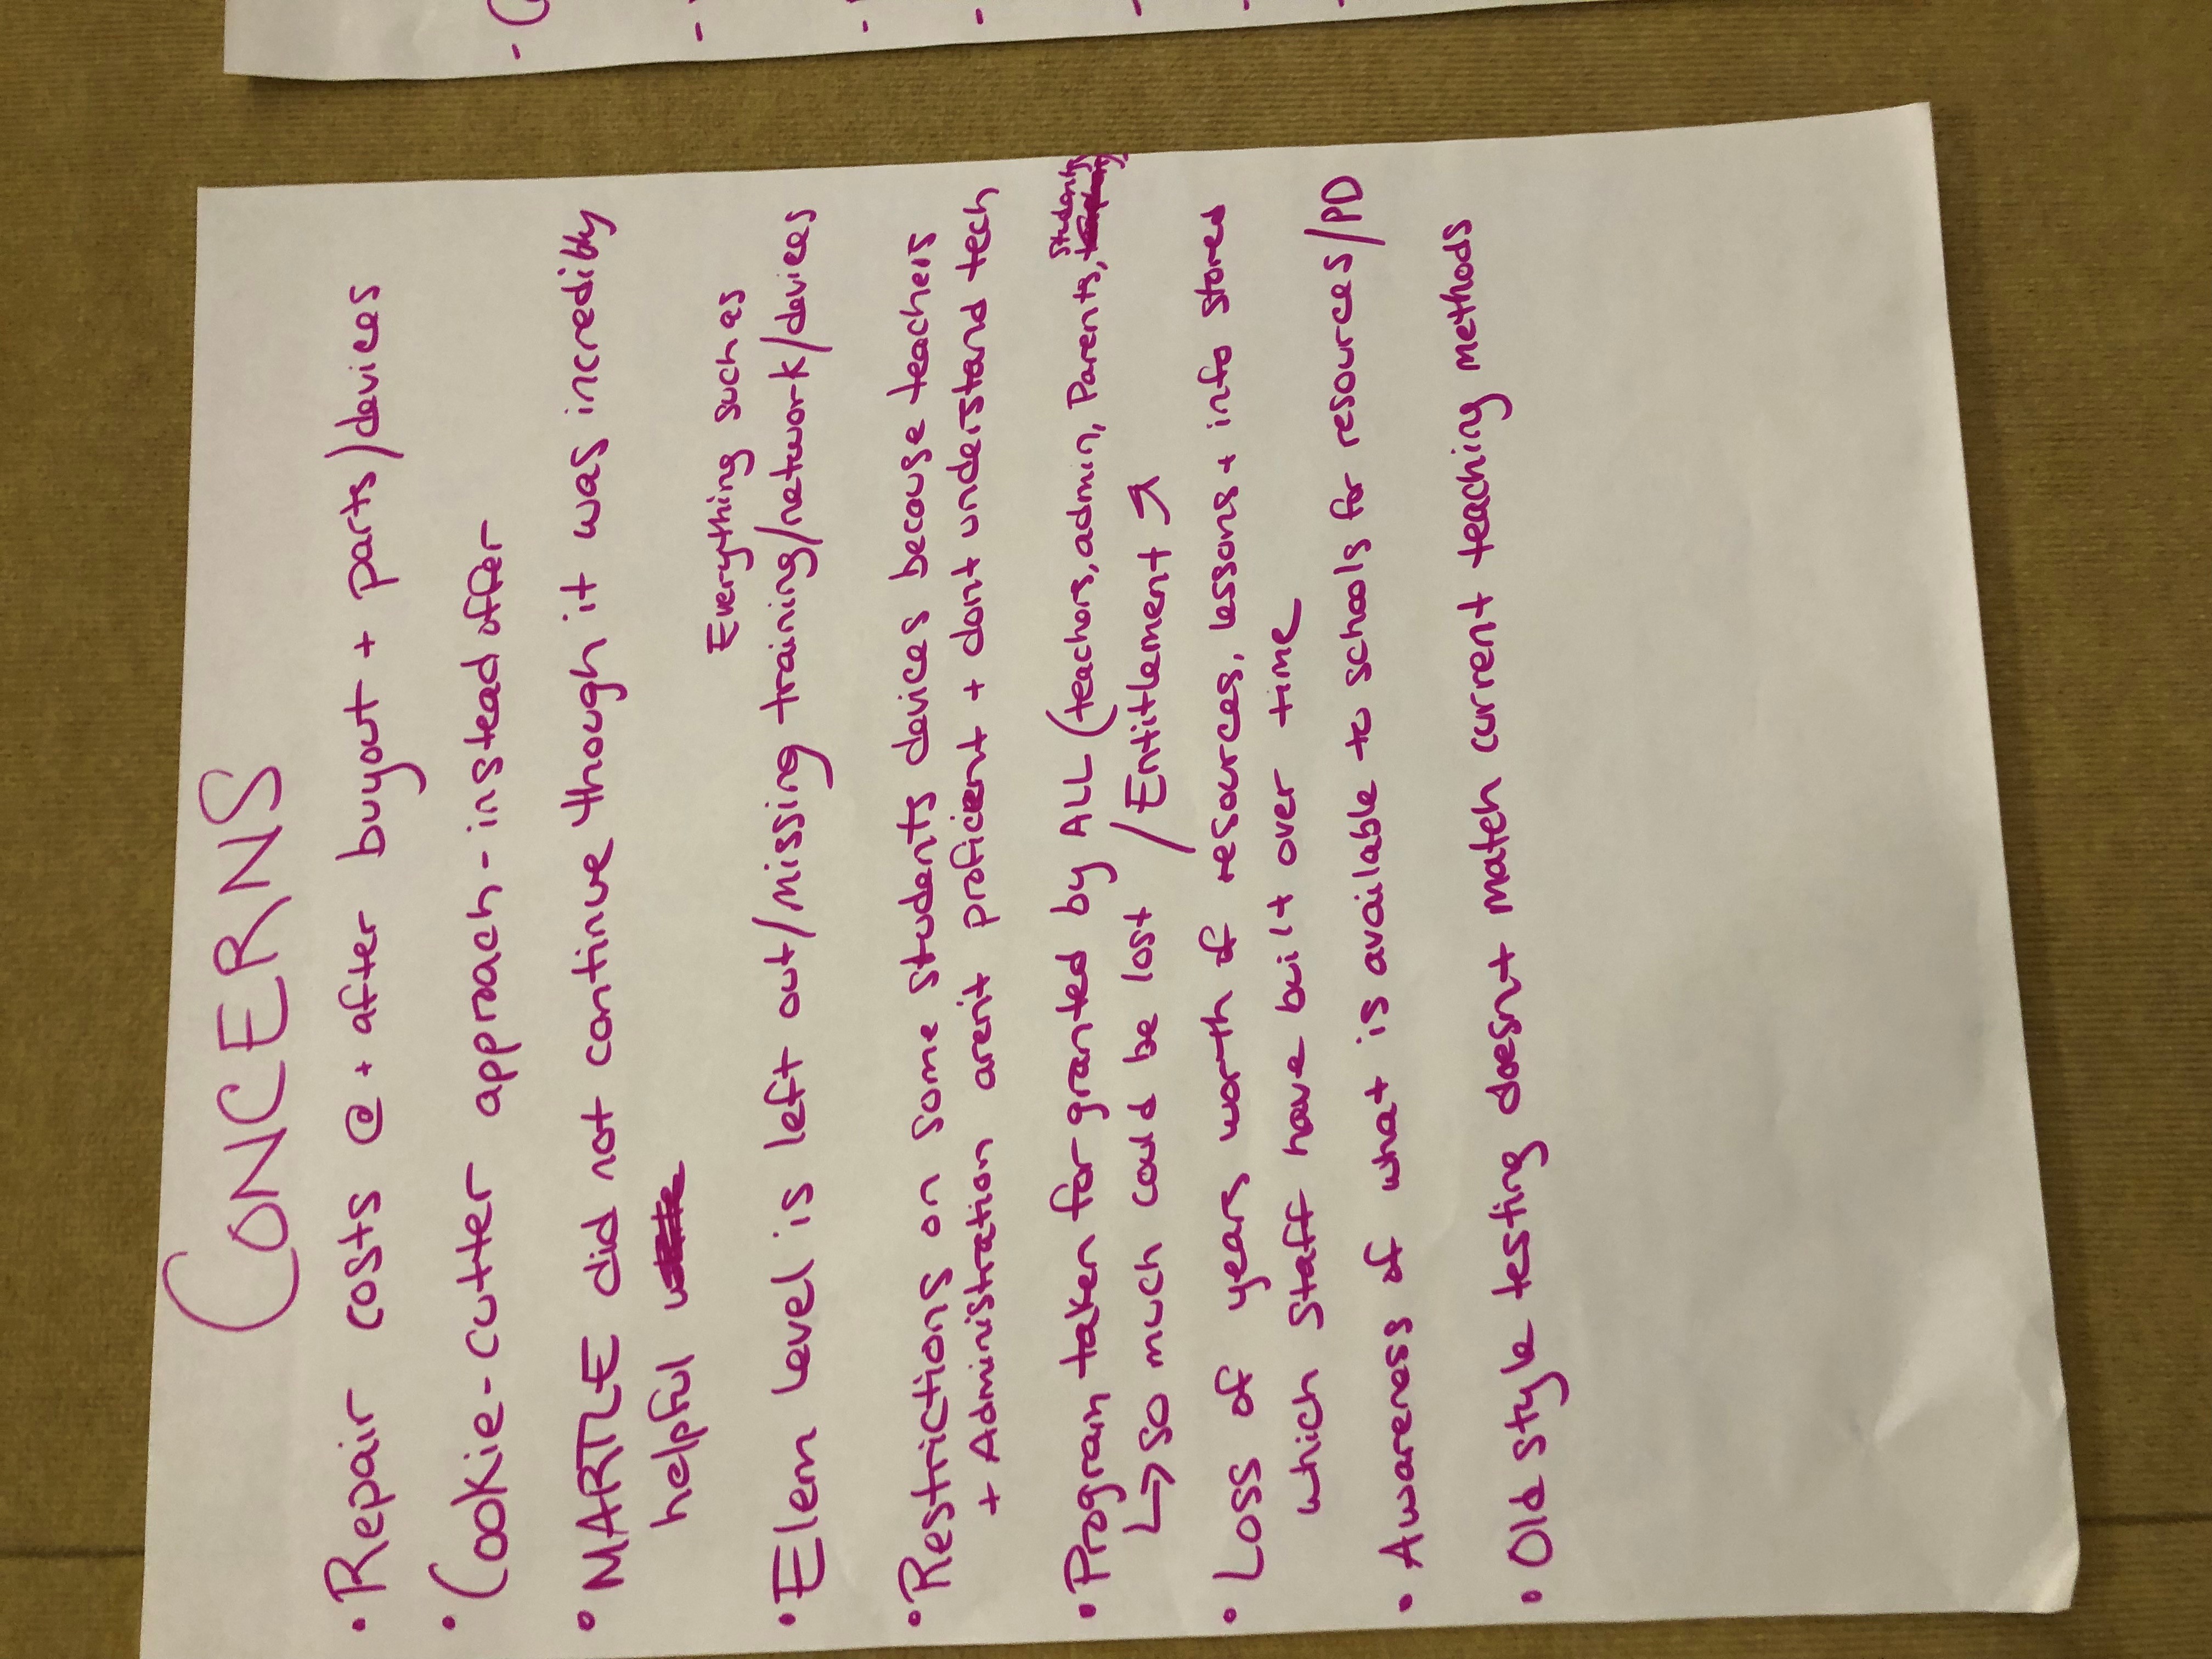 CONCERNS
• Repair costs @ + after buyout + parts/devices
• Cookie-cutter approach - instead offer
• MARTLE did not continue though it was incredibly
helpful
Everything such as
• Elem level is left out/missing training/network/devices
• Restrictions on some students devices because teachers
+ Administration aren't proficient + dont understand tech
• Program taken for granted by ALL (teachers, admin, Parents, students
↳ so much could be lost / Entitlement ↗
• Loss of years worth of resources, lessons + info stored
which staff have built over time
• Awareness of what is available to schools for resources/PD
• Old style testing doesn't match current teaching methods